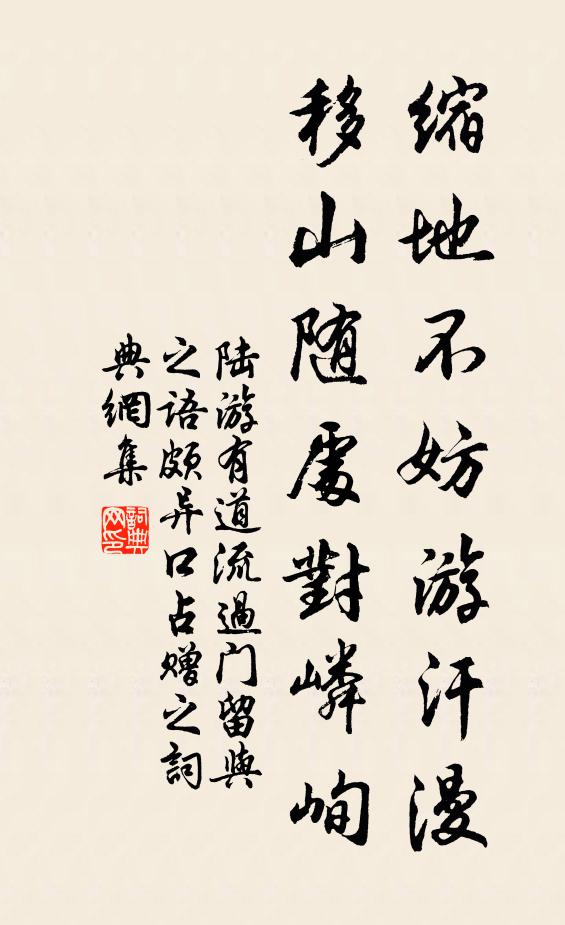 缩地不妨游汗漫
移山随處對嶙峋
陆游有道流過门留與
之语颇异口占赠之詞
典網集
詞典网印